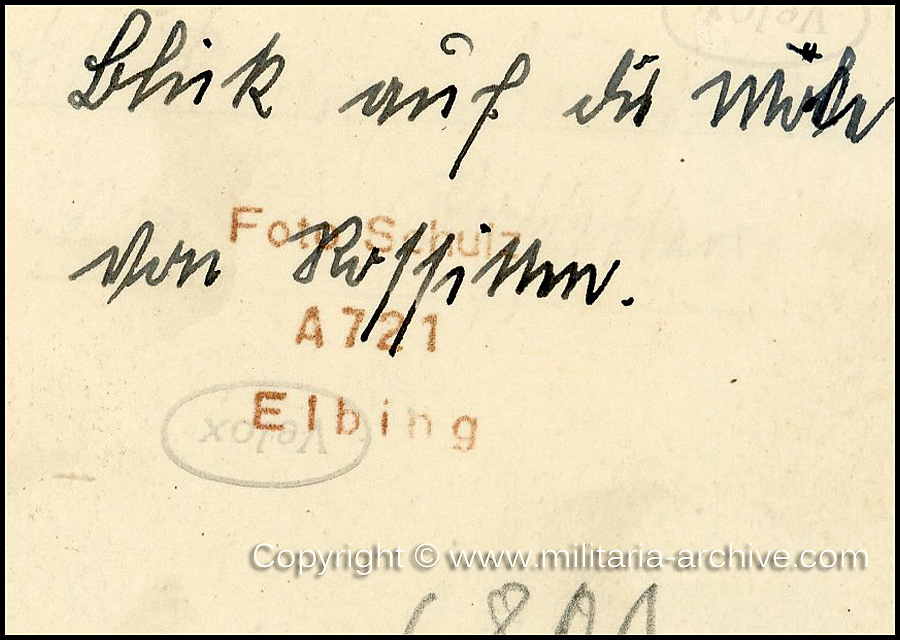 Velox
Blick auf die Mole
Foto Schulz
von Rossitten.
A721
Elbing
Velox
Copyright © www.militaria-archive.com